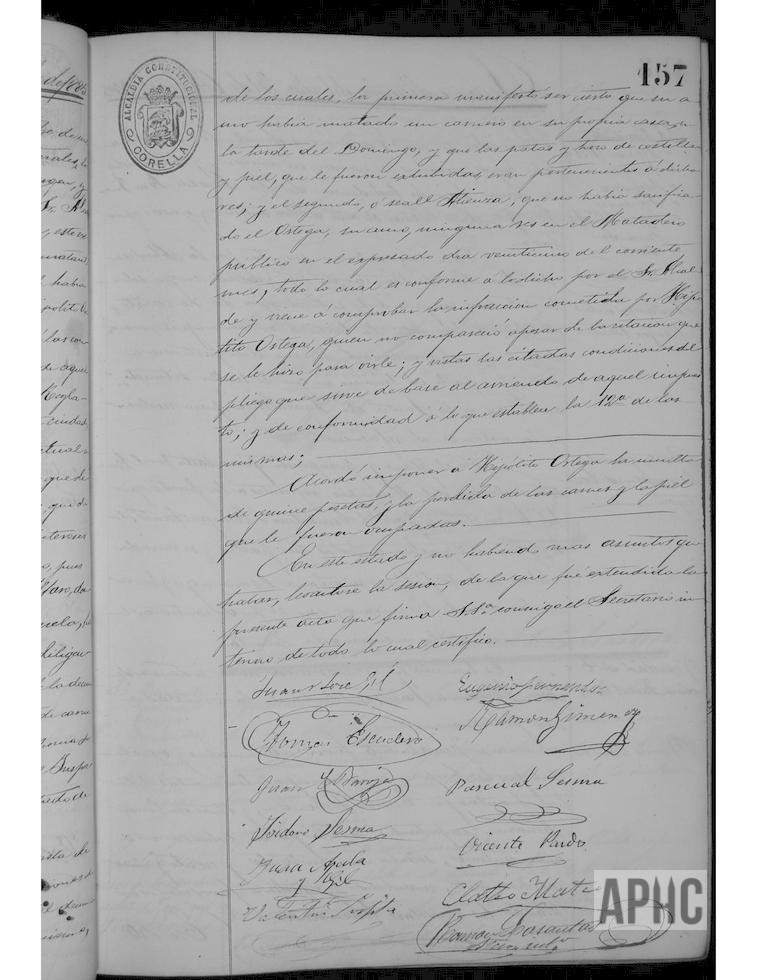 157
ALCALDIA CONSTITUCIONAL
CORELLA
de los cuales, la primera manifestó ser cierto que su a-
mo había matado un carnero en su propia casa, en
la tarde del Domingo, y que las patas y hero de costillar
y piel, que le fueron extendidas, eran pertenecientes á dicha
res; y el segundo, ó sea el Atienza, que no había sacrifica-
do el Ortega, su amo, ninguna res en el Matadero
público en el expresado dia veintiuno del corriente
mes; todo lo cual es conforme á lo dicho por el Sr. Alcal-
de y viene á comprobar la infraccion cometida por Hipó-
lito Ortega, quien no compareció apesar de la citacion que
se le hizo para oirle; y vistas las citadas condiciones del
pliego que sirve de base al arriendo de aquel impues-
to; y de conformidad á lo que establece la 12a de las
mismas;
Acordó imponer á Hipólito Ortega la multa
de quince pesetas, y la perdida de las carnes y la piel
que le fueron ocupadas.
En este estado y no habiendo mas asuntos que
tratar, levantóse la sesion, de la que fué extendida la
presente acta que firma S.Sa. conmigo el Secretario in-
terino de todo lo cual certifico.
Juan José Gil
Eugenio Fernandez
Tomas Escudero
Ramon Gimenez
Juan
Pascual Sesma
Isidoro Sesma
Vicente Pardo
Juan Ayala
y Gil
Mateo
Valentin
Ramon
APHC